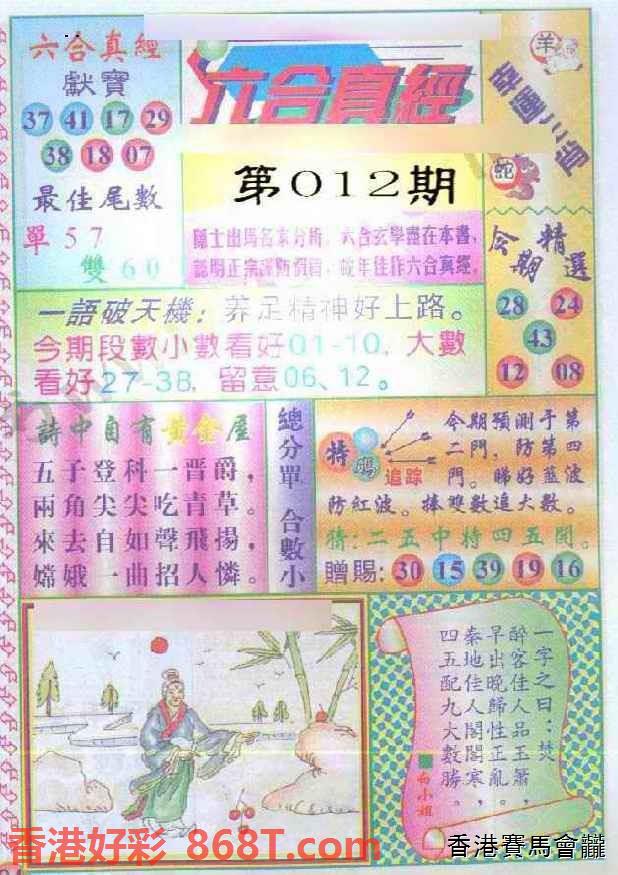 六合真經
獻寶
37 41 17 29
38 18 07
最佳尾數
單57
雙60
六合真經
第012期
隱士出馬名家分析，六合玄學盡在本書，
羊
蛇
今期精選
28 24
43
12 08
一語破天機：养足精神好上路。
今期段數小數看好01-10，大數
看好27-38，留意06、12。
詩中自有黃金屋
五子登科一晋爵，
兩角尖尖吃青草。
來去自如聲飛揚，
嫦娥一曲招人憐。
總分單 合數小
特碼
追踪
今期預測于第
二門，防第四
門。睇好藍波
防紅波。捧雙數追大數。
猜：二五中特四五開。
贈賜：30 15 39 19 16
一字之曰：焚
醉客佳人品玉簫，
早出晚歸性正亂。
秦地佳人閣閣寒，
四五配九大數勝。
白小姐
香港好彩 868T.com
香港賽馬會